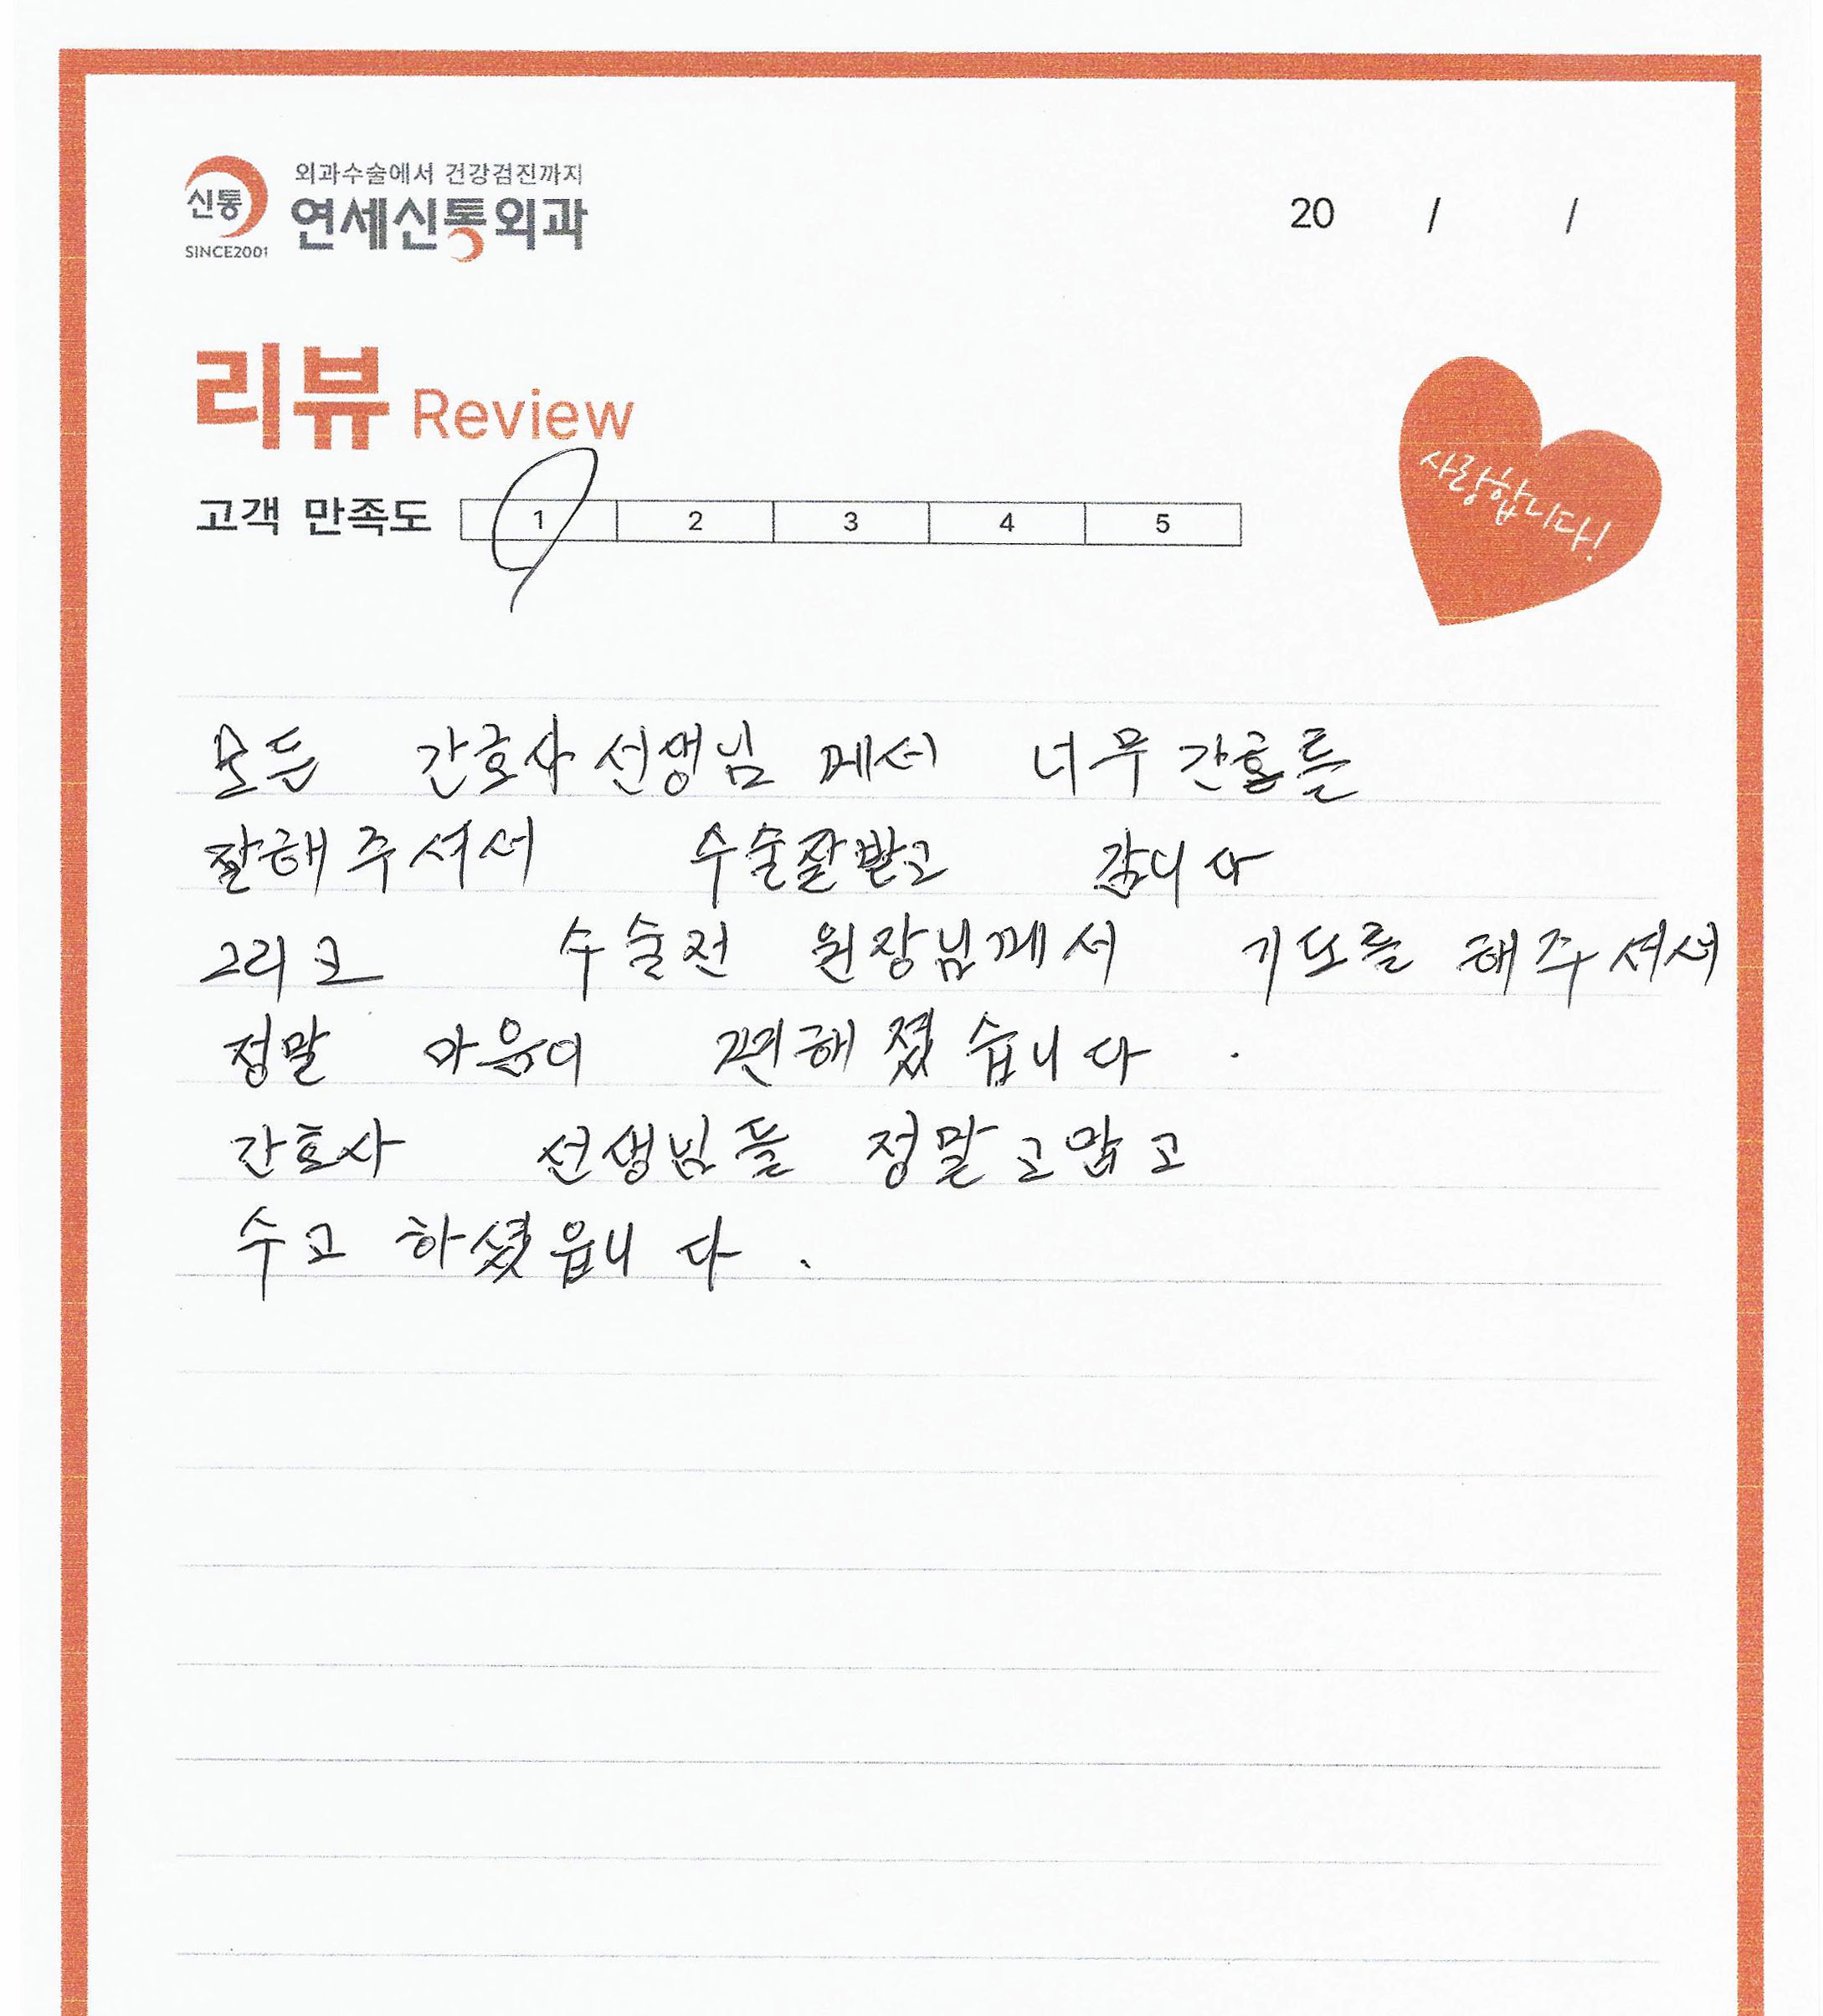 외과수술에서 건강검진까지
신통 연세신통외과
SINCE2001
20 / /
리뷰 Review
사랑합니다!
고객 만족도 1 2 3 4 5
모든 간호사선생님 께서 너무 간호를
잘해주셔서 수술잘받고 갑니다
그리고 수술전 원장님께서 기도를 해주셔서
정말 마음이 편해졌습니다.
간호사 선생님들 정말고맙고
수고 하셨읍니다.